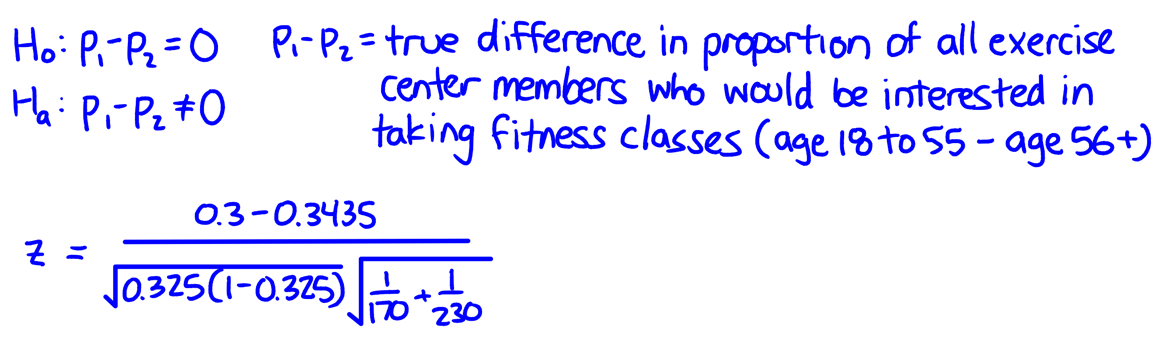 H₀: p₁-p₂ = 0 p₁-p₂ = true difference in proportion of all exercise
center members who would be interested in
Hₐ: p₁-p₂ ≠ 0
taking fitness classes (age 18 to 55 - age 56+)
0.3-0.3435
z =
√0.325(1-0.325) √1/170 + 1/230